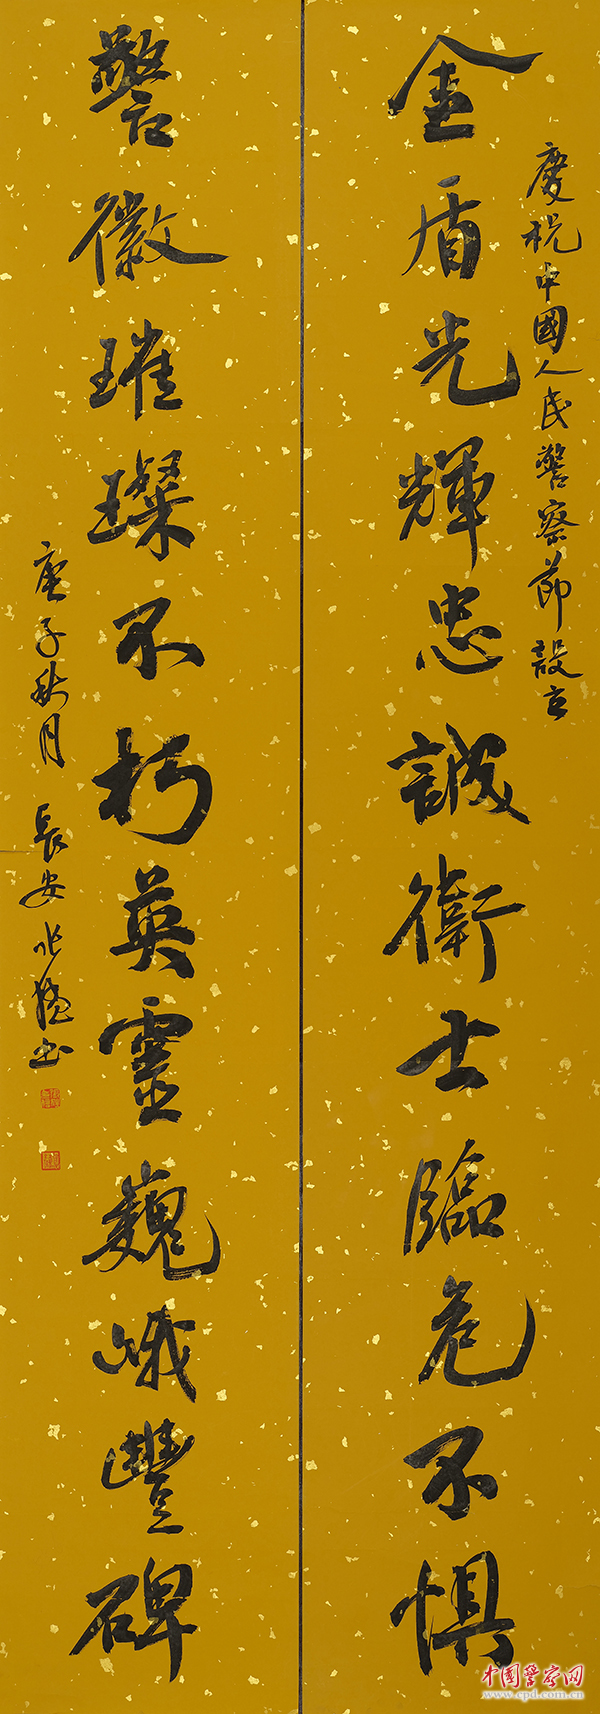 慶祝中國人民警察節設立
金盾光輝忠誠衛士臨危不懼
警徽璀璨不朽英靈巍峨豐碑
庚子秋月 長安 書
中国警察网
www.cpd.com.cn